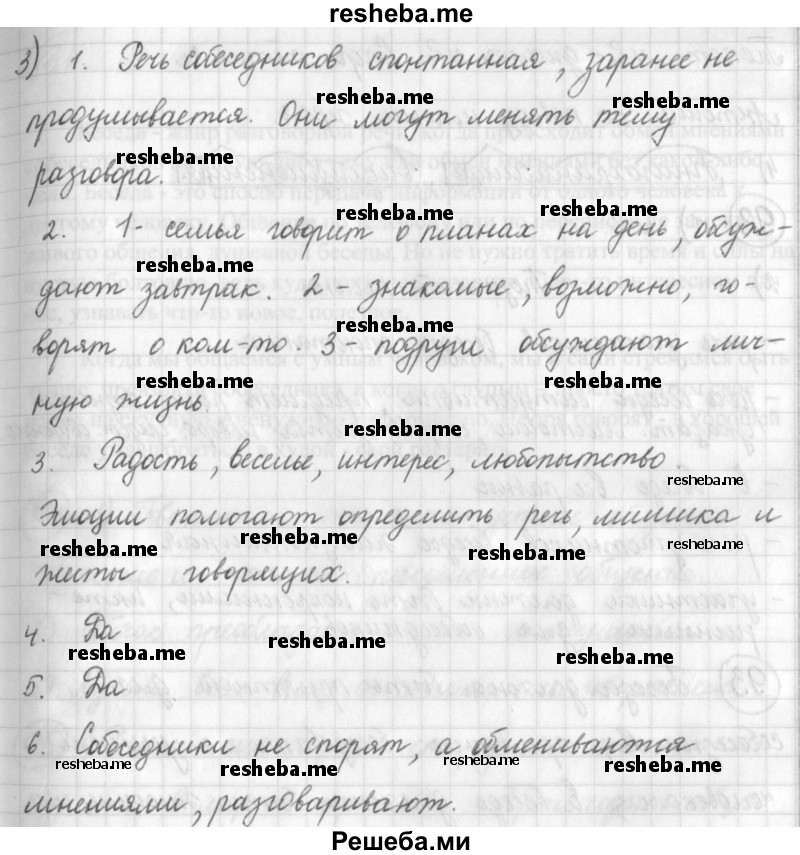 resheba.me
3) 1. Речь собеседников спонтанная, заранее не
resheba.me resheba.me
продумывается. Они могут менять тему
resheba.me
разговора.
resheba.me resheba.me
2. 1 - семья говорит о планах на день, обсуж-
resheba.me resheba.me
дают завтрак. 2 - знакомые, возможно, го-
resheba.me resheba.me
ворят о ком-то 3 - подруги обсуждают лич-
resheba.me resheba.me
ную жизнь.
resheba.me
3. Радость, веселье, интерес, любопытство.
resheba.me
Эмоции помогают определить речь, мимика и
resheba.me resheba.me resheba.me resheba.me
жесты говорящих.
4. Да
resheba.me resheba.me resheba.me
5. Да
6. Собеседники не спорят, а обмениваются
resheba.me resheba.me resheba.me resheba.me
мнениями, разговаривают.
Решеба.ми